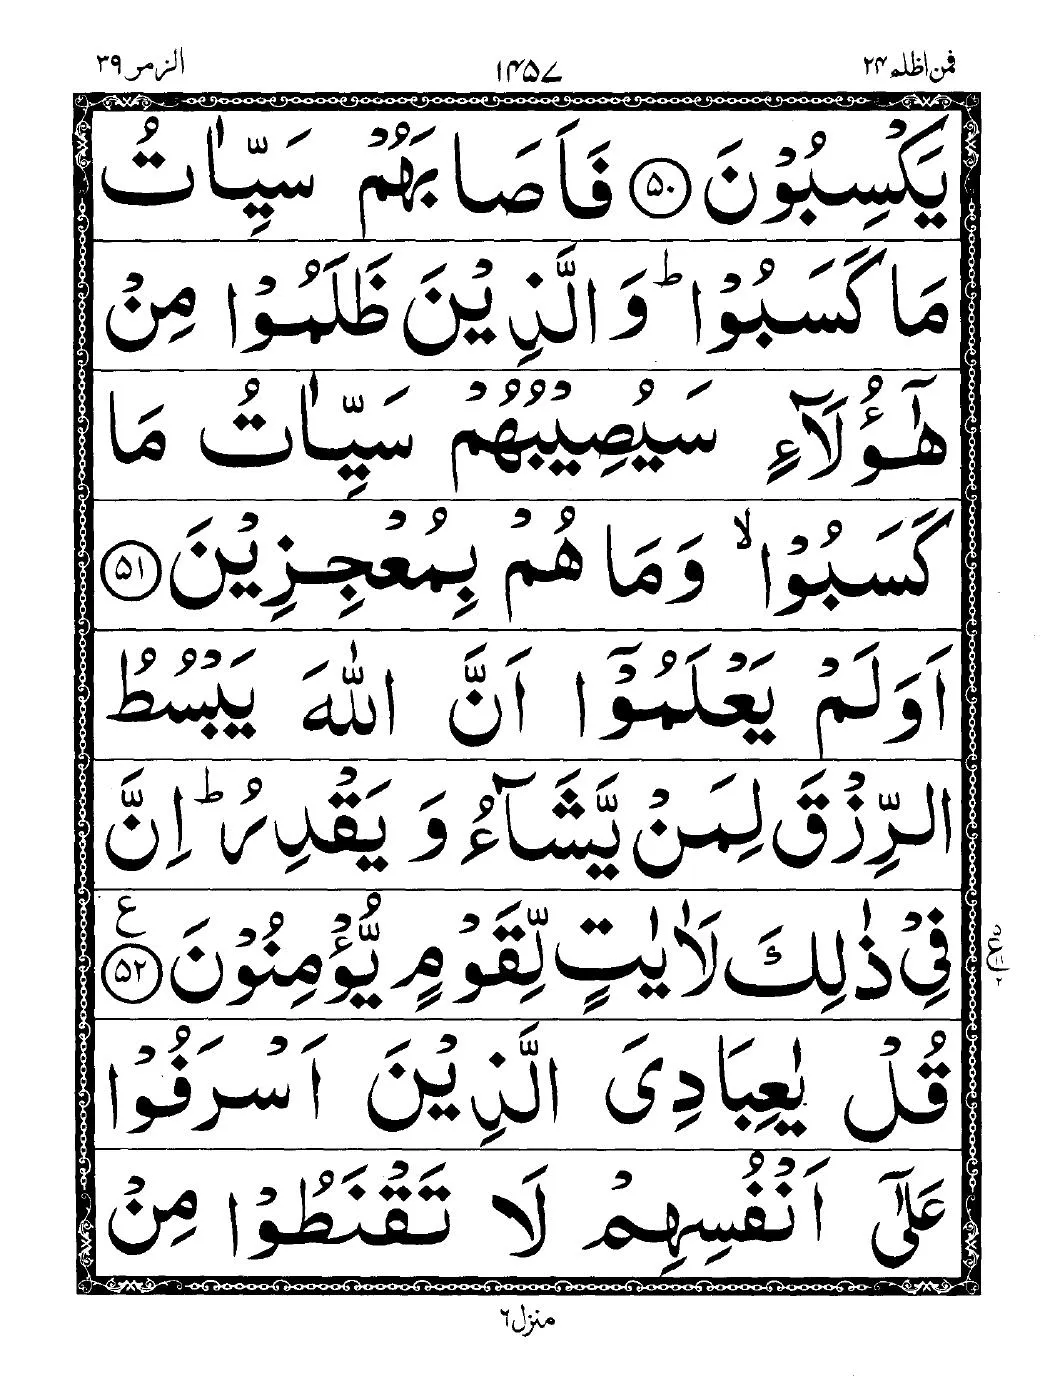 فمن اظلم ۲۴ ۱۴۵۷ الزمر ۳۹
يَكْسِبُوْنَ ﴿۵۰﴾ فَاَصَابَهُمْ سَيِّاٰتُ
مَا كَسَبُوْا ؕ وَالَّذِيْنَ ظَلَمُوْا مِنْ
هٰٓؤُلَآءِ سَيُصِيْبُهُمْ سَيِّاٰتُ مَا
كَسَبُوْا ۙ وَمَا هُمْ بِمُعْجِزِيْنَ ﴿۵۱﴾
اَوَلَمْ يَعْلَمُوْۤا اَنَّ اللّٰهَ يَبْسُطُ
الرِّزْقَ لِمَنْ يَّشَآءُ وَيَقْدِرُ ؕ اِنَّ
فِيْ ذٰلِكَ لَاٰيٰتٍ لِّقَوْمٍ يُّؤْمِنُوْنَ ﴿۵۲﴾ ع
قُلْ يٰعِبَادِىَ الَّذِيْنَ اَسْرَفُوْا
عَلٰٓى اَنْفُسِهِمْ لَا تَقْنَطُوْا مِنْ
منزل ۶